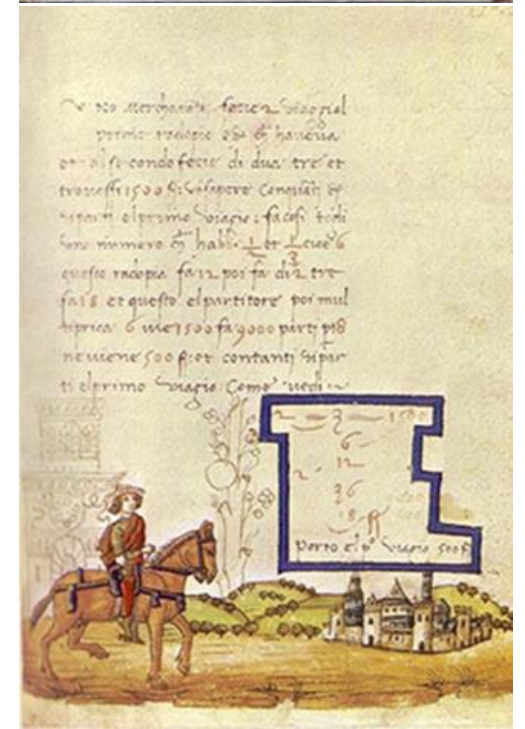 no merchatante fecie 2 viaggi al
primo radopio che haveva
et al secondo fecie di dua tre et
trovossi 1500 sapere
si parti el primo viagio: fa cosi todi
uno numero habi 1/2 et 1/3 cioe 6
questo radopia fa 12 poi fa di 2 tre
fa 18 et questo el partitore poi mul
tiprica 6 vie 1500 fa 9000 parti p 18
ne viene 500 et contanti si par
ti el primo viagio Come vedi
2 — 3 — 1500
6
2 12
36
18
Porto el p° viagio 500 f